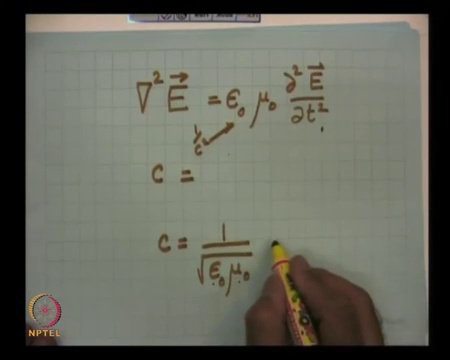 ∇² E⃗ = ϵ₀ μ₀ ∂² E⃗ / ∂t²
1/c²
c =
c = 1 / √(ϵ₀ μ₀)
NPTEL